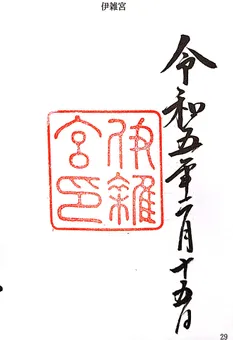 伊雜宮
令和五年二月十五日
伊雜
宮印
29